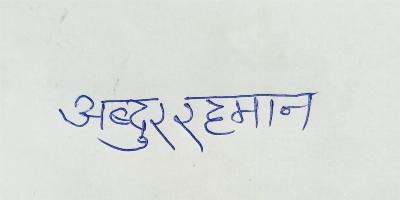 अब्दुर रहमान